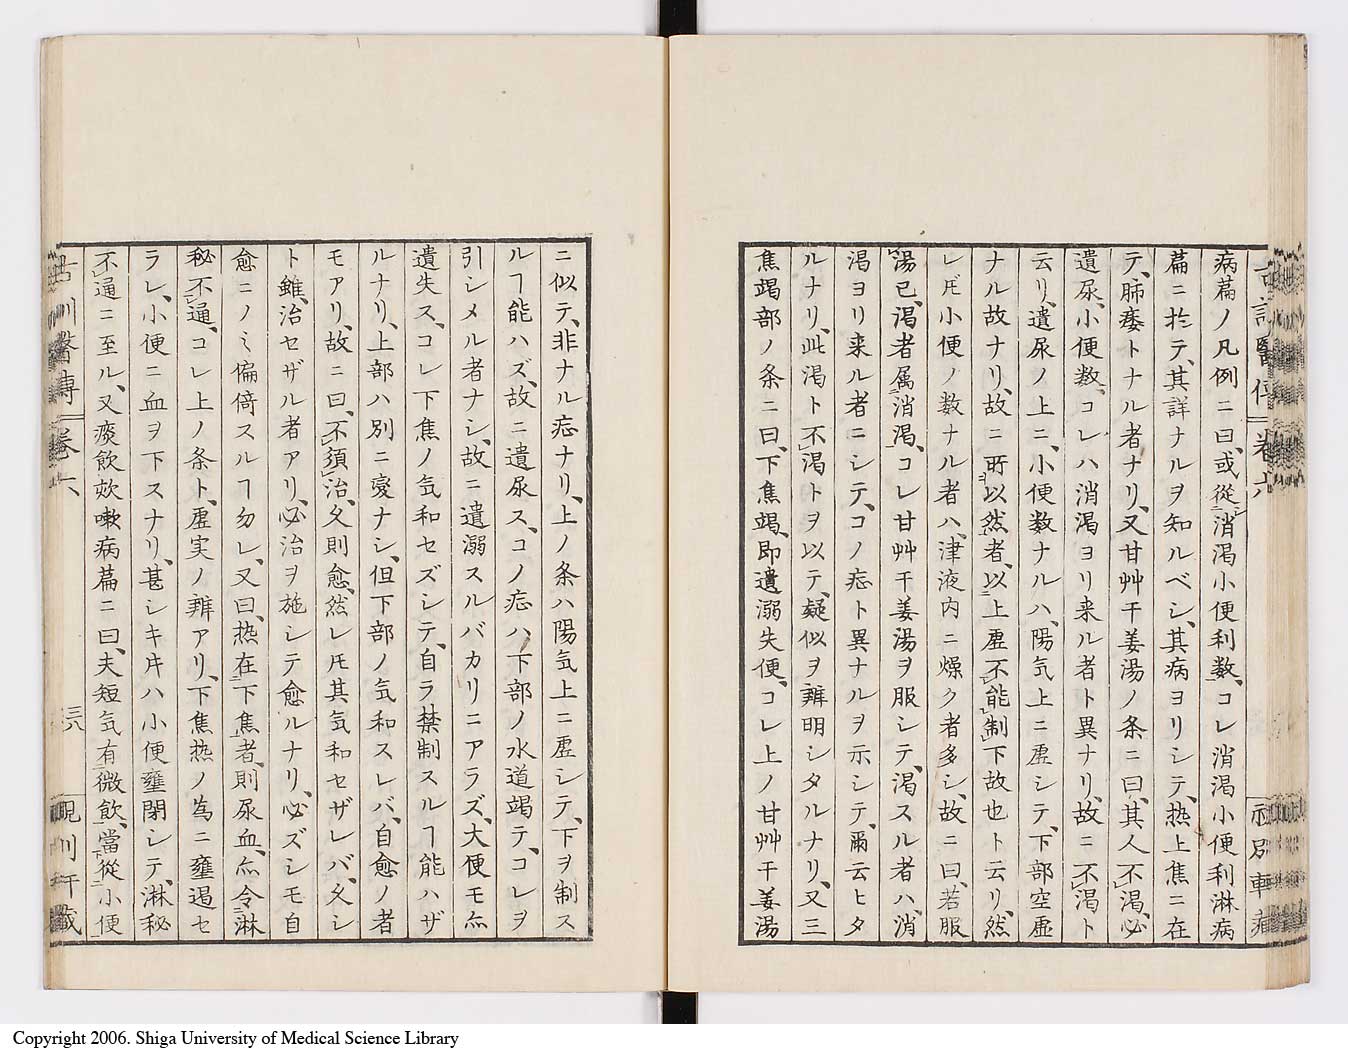 病篇ノ凡例ニ曰、或從消渇小便利数、コレ消渇小便利淋病
篇ニ於テ、其詳ナルヲ知ルベシ、其病ヨリシテ、热上焦ニ在
テ、肺痿トナル者ナリ、又甘艸干姜湯ノ条ニ曰、其人不渇、必
遺尿、小便数、コレハ消渇ヨリ来ル者ト異ナリ、故ニ不渇ト
云リ、遺尿ノ上ニ、小便数ナルハ、陽気上ニ虚シテ、下部空虚
ナル故ナリ、故ニ所以然者、以上虚不能制下故也ト云リ、然
レ𪜈小便ノ数ナル者ハ、津液内ニ燥ク者多シ、故ニ曰、若服
湯已、渇者属消渇、コレ甘艸干姜湯ヲ服シテ、渇スル者ハ、消
渇ヨリ来ル者ニシテ、コノ症ト異ナルヲ示シテ、爾云ヒタ
ルナリ、此渇ト不渇トヲ以テ、疑似ヲ辨明シタルナリ、又三
焦竭部ノ条ニ曰、下焦竭、即遺溺失便、コレ上ノ甘艸干姜湯
ニ似テ、非ナル症ナリ、上ノ条ハ陽気上ニ虚シテ、下ヲ制ス
ルヿ能ハズ、故ニ遺尿ス、コノ症ハ、下部ノ水道竭テ、コレヲ
引シメル者ナシ、故ニ遺溺スルバカリニアラズ、大便モ亦
遺失ス、コレ下焦ノ気和セズシテ、自ラ禁制スルヿ能ハザ
ルナリ、上部ハ別ニ変ナシ、但下部ノ気和スレバ、自愈ノ者
モアリ、故ニ曰、不須治、久則愈、然レ𪜈其気和セザレバ、久シ
ト雖、治セザル者アリ、必治ヲ施シテ愈ルナリ、必ズシモ自
愈ニノミ偏倚スルヿ勿レ、又曰、热在下焦者、則尿血、亦令淋
秘不通、コレ上ノ条ト、虚実ノ辨アリ、下焦热ノ為ニ壅遏セ
ラレ、小便ニ血ヲ下スナリ、甚シキ𪜈ハ小便壅閉シテ、淋秘
不通ニ至ル、又痰飲欬嗽病篇ニ曰、夫短気有微飲、當從小便
三八
Copyright 2006. Shiga University of Medical Science Library